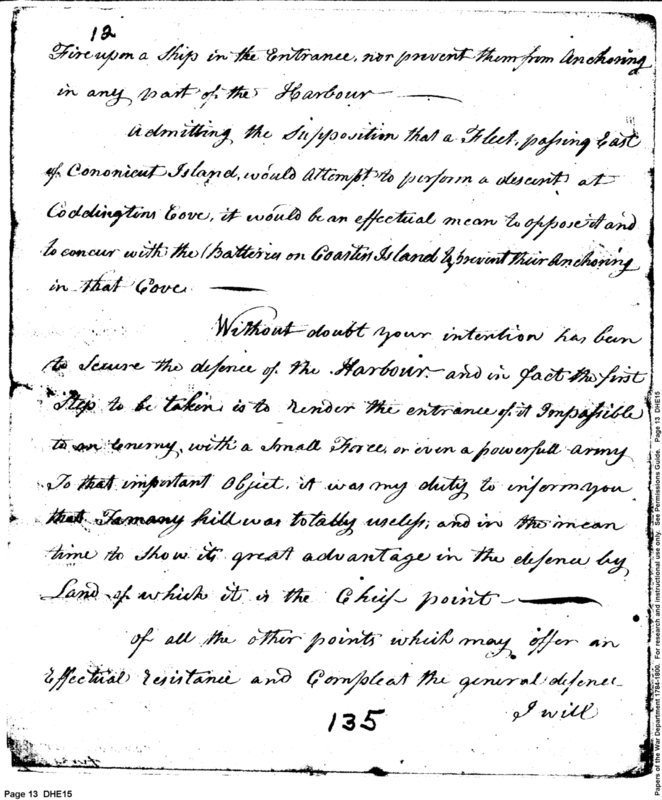 12
Fire upon a Ship in the Entrance, nor prevent them from Anchoring
in any part of the Harbour —
Admitting the Supposition that a Fleet, passing East
of Cononicut Island, would attempt to perform a descent at
Coddingtins Cove, it would be an effectual mean to oppose it and
to concur with the Batteries on Coasters Island to prevent their Anchoring
in that Cove —
Without doubt your intention has been
to Secure the defence of the Harbour and in fact the first
Step to be taken is to render the entrance of it Impassible
to an Enemy, with a Small Force, or even a powerfull army
To that important Object, it was my duty to inform you
that Tamany hill was totally useless; and in the mean
time to Show its great advantage in the defence by
Land of which it is the Chief point —
Of all the other points which may offer an
Effectual resistance and Compleat the general defence
I will
135
Page 13 DHE15
Papers of the War Department 1784-1800. For research and instructional use only. See Permissions Guide. Page 13 DHE15